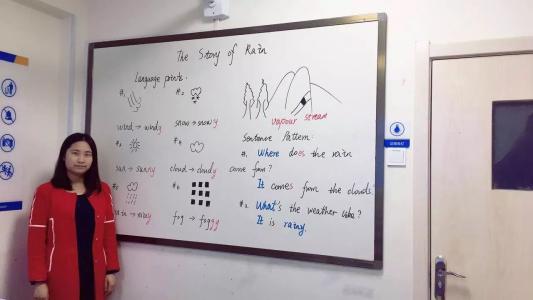 The Story of Rain
Language points:
#1.
#2.
wind → windy
snow → snowy
sun → sunny
cloud → cloudy
rain → rainy
fog → foggy
vapour stream
Sentence Pattern:
#1. Where does the rain
come from?
It comes from the clouds.
#2. What's the weather like?
It is rainy.